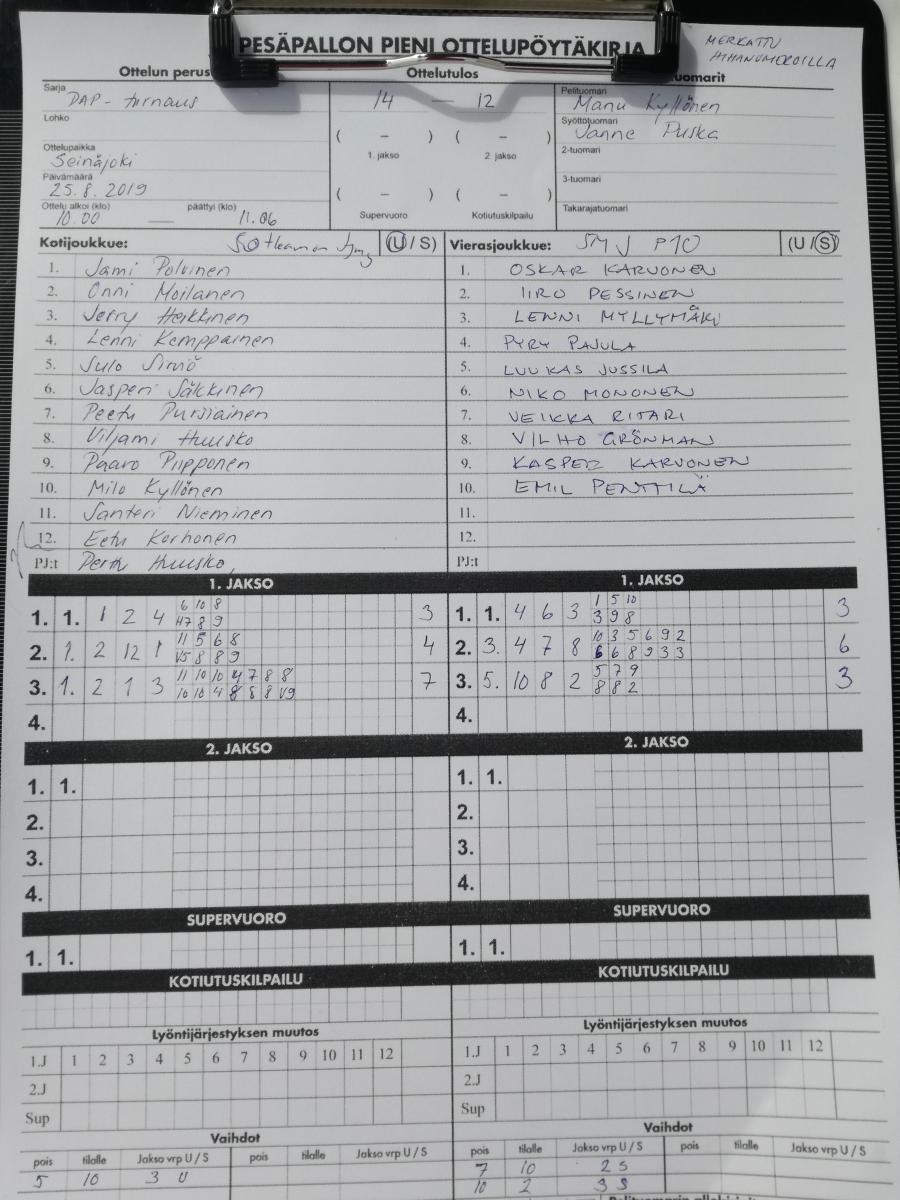 PESÄPALLON PIENI OTTELUPÖYTÄKIRJA
MERKATTU
HIHANUMEROILLA
Ottelun perus
Ottelutulos
uomarit
Sarja
DAP - turnaus
14 — 12
Pelituomari
Manu Kyllönen
Lohko
Syöttötuomari
Janne Puska
( – ) ( – )
1. jakso 2. jakso
2-tuomari
Ottelupaikka
Seinäjoki
Päivämäärä
25.8.2019
3-tuomari
Ottelu alkoi (klo) päättyi (klo)
10.00 — 11.06
( – ) ( – )
Supervuoro Kotiutuskilpailu
Takarajatuomari
Kotijoukkue: Sotkamon (U / S)
Vierasjoukkue: SMJ P10 (U / S)
1. Jami Polvinen
2. Onni Moilanen
3. Jerry Heikkinen
4. Lenni Kemppainen
5. Julo Simiö
6. Jasperi Sälkkinen
7. Peetu Pursiainen
8. Viljami Huusko
9. Paavo Piipponen
10. Milo Kyllönen
11. Santeri Nieminen
12. Eetu Korhonen
PJ:t Perttu Huusko
1. OSKAR KARVONEN
2. IIRO PESSINEN
3. LENNI MYLLYMÄKI
4. PYRY PAJULA
5. LUUKAS JUSSILA
6. NIKO MONONEN
7. VEIKKA RITARI
8. VILHO GRÖNMAN
9. KASPER KARVONEN
10. EMIL PENTTILÄ
11.
12.
PJ:t
1. JAKSO
1. 1. 1 2 4 6 10 8 3
47 8 9
2. 1. 2 12 1 11 5 6 8 4
15 8 8 9
3. 1. 2 1 3 11 10 10 4 7 8 8 7
10 10 4 8 8 8 19
4.
1. JAKSO
1. 1. 4 6 3 1 5 10 3
3 9 8
2. 3. 4 7 8 10 3 5 6 9 2 6
6 6 8 9 3 3
3. 5. 10 8 2 5 7 9 3
8 8 2
4.
2. JAKSO
1. 1.
2.
3.
4.
2. JAKSO
1. 1.
2.
3.
4.
SUPERVUORO
1. 1.
SUPERVUORO
1. 1.
KOTIUTUSKILPAILU
KOTIUTUSKILPAILU
Lyöntijärjestyksen muutos
1.J 1 2 3 4 5 6 7 8 9 10 11 12
2.J
Sup
Lyöntijärjestyksen muutos
1.J 1 2 3 4 5 6 7 8 9 10 11 12
2.J
Sup
Vaihdot
pois tilalle Jakso vrp U / S pois tilalle Jakso vrp U / S
5 10 3 U
Vaihdot
pois tilalle Jakso vrp U / S pois tilalle Jakso vrp U / S
7 10 2 S
10 2 3 S